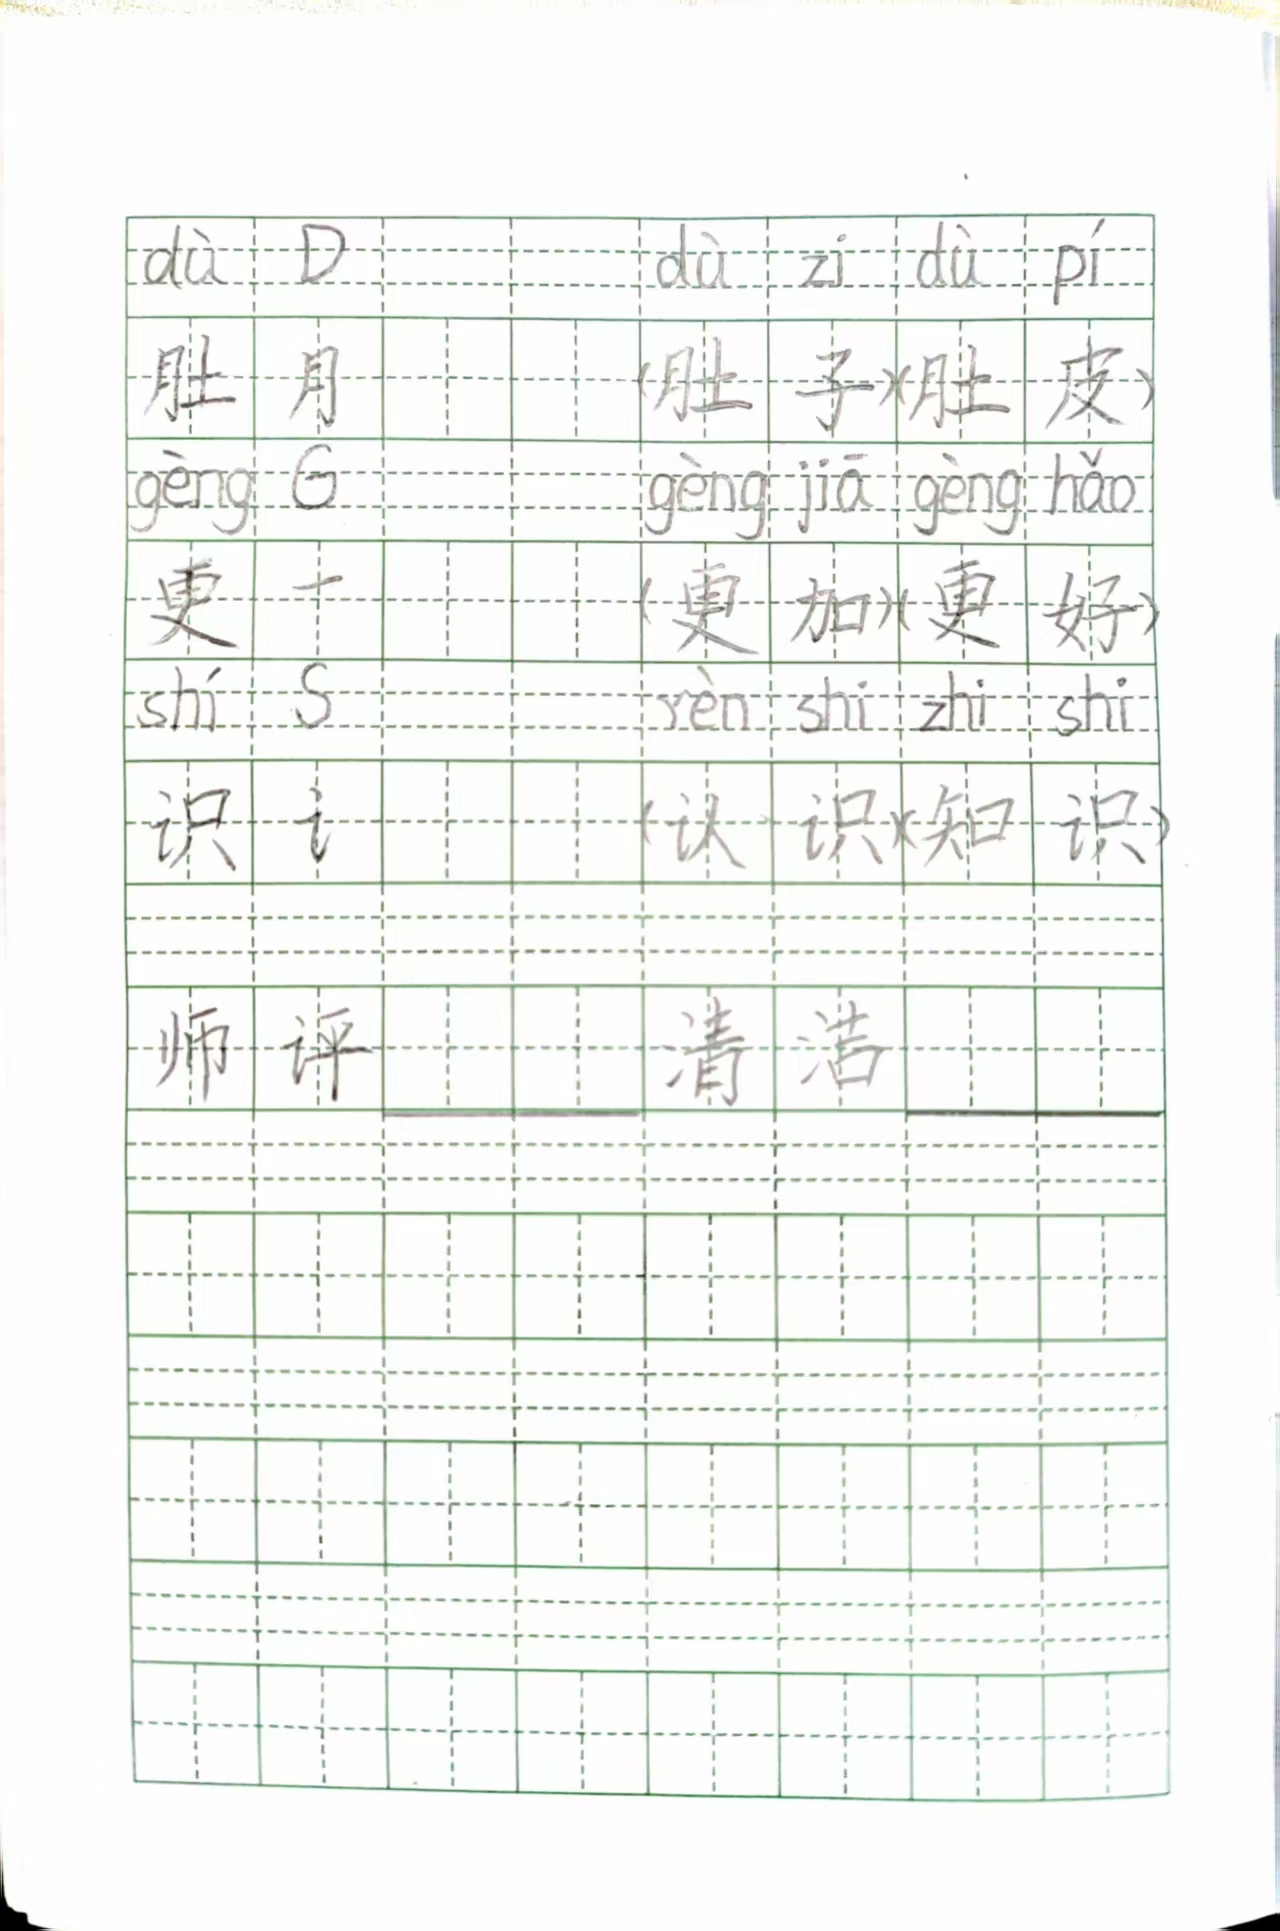 dù D dù zi dù pí
肚 月 (肚 子)(肚 皮)
gèng G gèng jiā gèng hǎo
更 一 (更 加)(更 好)
shí S rèn shi zhi shi
识 讠 (认 识)(知 识)
师 评 清 洁